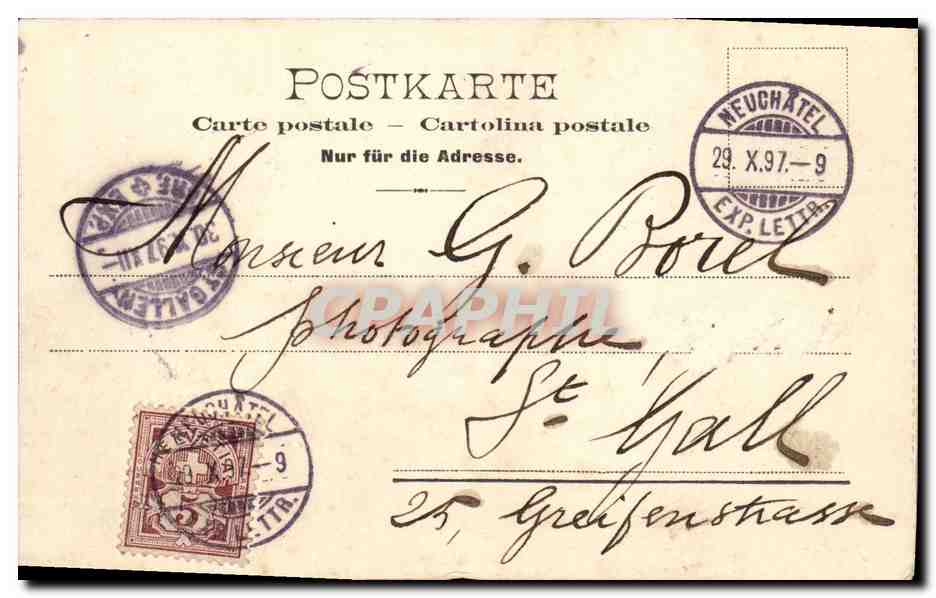 POSTKARTE
Carte postale – Cartolina postale
Nur für die Adresse.
NEUCHÂTEL
29. X.97.–9
EXP. LETTR.
Monsieur G. Borel
photographe
St. Gall
25, Greifenstrasse
CPAPHIL
GALLEN
NEUCHÂTEL
–9
LETTR.
5